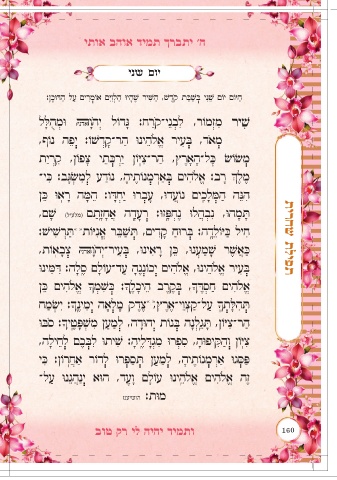 ה׳ יתברך תמיד אוהב אותי
יום שני
היום יום שני בשבת קדש, השיר שהיו הלוים אומרים על הדוכן:
שִׁיר מִזְמוֹר, לִבְנֵי־קֹרַח: גָּדוֹל יְהוָה וּמְהֻלָּל
מְאֹד, בְּעִיר אֱלֹהֵינוּ הַר־קָדְשׁוֹ: יְפֵה נוֹף,
מְשׂוֹשׂ כָּל־הָאָרֶץ, הַר־צִיּוֹן יַרְכְּתֵי צָפוֹן, קִרְיַת
מֶלֶךְ רָב: אֱלֹהִים בְּאַרְמְנוֹתֶיהָ, נוֹדַע לְמִשְׂגָּב: כִּי־
הִנֵּה הַמְּלָכִים נוֹעֲדוּ, עָבְרוּ יַחְדָּו: הֵמָּה רָאוּ כֵּן
תָּמָהוּ, נִבְהֲלוּ נֶחְפָּזוּ: רְעָדָה אֲחָזָתַם שָׁם,
חִיל כַּיּוֹלֵדָה: בְּרוּחַ קָדִים, תְּשַׁבֵּר אֳנִיּוֹת תַּרְשִׁישׁ:
כַּאֲשֶׁר שָׁמַעְנוּ, כֵּן רָאִינוּ, בְּעִיר־יְהוָה צְבָאוֹת,
בְּעִיר אֱלֹהֵינוּ, אֱלֹהִים יְכוֹנְנֶהָ עַד־עוֹלָם סֶלָה: דִּמִּינוּ
אֱלֹהִים חַסְדֶּךָ, בְּקֶרֶב הֵיכָלֶךָ: כְּשִׁמְךָ אֱלֹהִים כֵּן
תְּהִלָּתְךָ עַל־קַצְוֵי־אֶרֶץ, צֶדֶק מָלְאָה יְמִינֶךָ: יִשְׂמַח
הַר־צִיּוֹן, תָּגֵלְנָה בְּנוֹת יְהוּדָה, לְמַעַן מִשְׁפָּטֶיךָ: סֹבּוּ
צִיּוֹן וְהַקִּיפוּהָ, סִפְרוּ מִגְדָּלֶיהָ: שִׁיתוּ לִבְּכֶם לְחֵילָה,
פַּסְּגוּ אַרְמְנוֹתֶיהָ, לְמַעַן תְּסַפְּרוּ לְדוֹר אַחֲרוֹן: כִּי
זֶה אֱלֹהִים אֱלֹהֵינוּ עוֹלָם וָעֶד, הוּא יְנַהֲגֵנוּ עַל־
מוּת: הושיענו
תפילת שחרית
ותמיד יהיה לי רק טוב
160